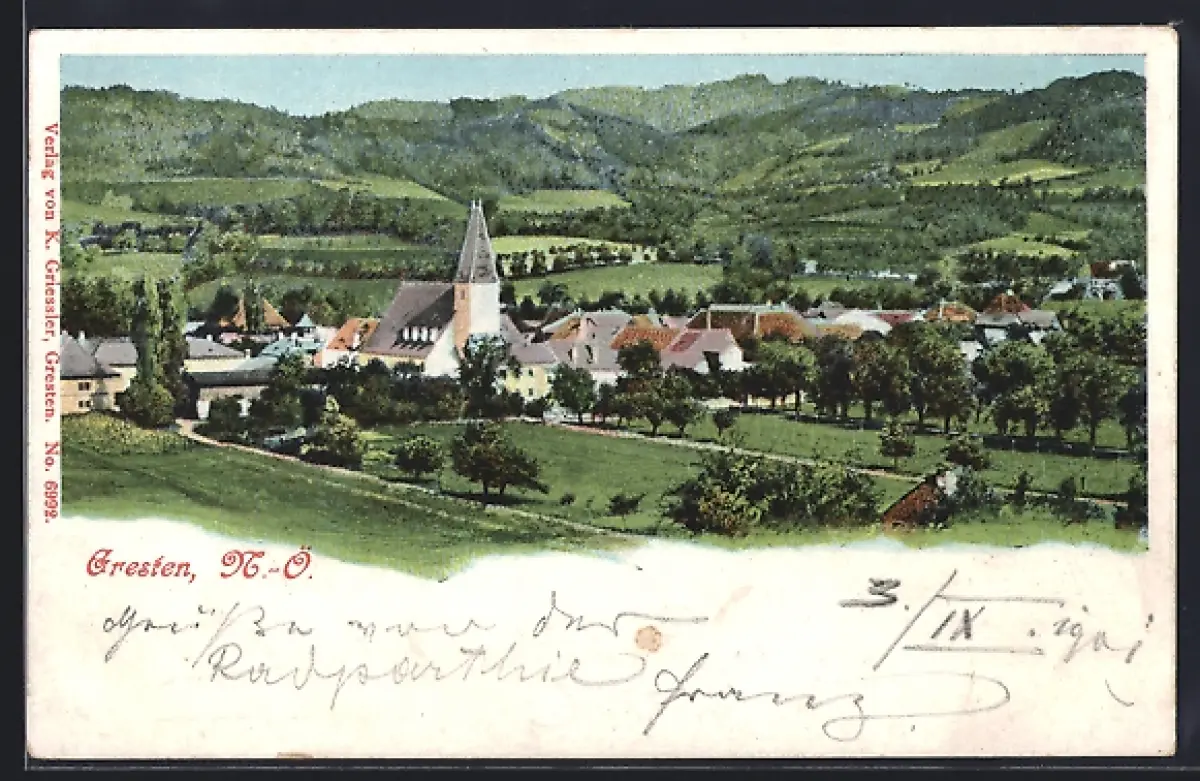 Verlag von K. Griessler, Gresten. No. 6992.
Gresten, N.-Ö.
3./IX. 1901
Grüße von der
Radparthie Franz